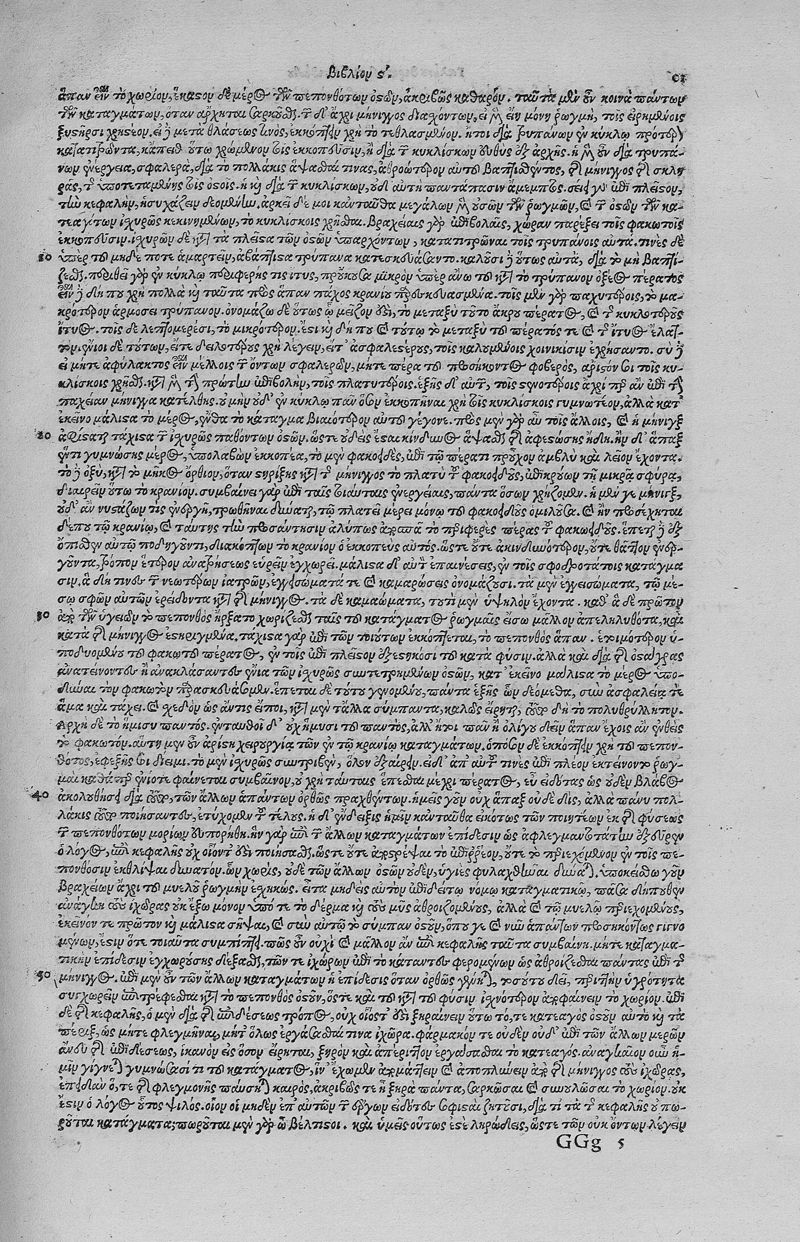 Βιβλίου ϛ΄. 91
ἅπαν εἶναι τὸ χωρίον, ἕκαστον δὲ μέρος τῶν πεπονθότων ὀστῶν, ἀκριβῶς καθαρόν. ταῦτα μὲν οὖν κοινὰ πάντων
τῶν καταγμάτων, ὅταν ἄρχηται σαρκοῦσθαι. τὰ δ' ἄχρι μήνιγγος διασχόντων, εἰ μὲν εἴη μόνη ῥωγμὴ, τοῖς εἰρημένοις
ξυστῆρσι χρηστέον. εἰ δὲ μετὰ θλάσεώς τινος, ἐκκόπτειν χρὴ τὸ τεθλασμένον. ἤτοι διὰ τρυπάνων ἐν κύκλῳ πρότερον
κατατιτρῶντα, κἄπειθ' οὕτω χρώμενον τοῖς ἐκκοπεῦσιν, ἢ διὰ τῶν κυκλίσκων εὐθὺς ἐξ ἀρχῆς. ἡ μὲν οὖν διὰ τρυπά-
νων ἐνέργεια, σφαλερὰ, διὰ τὸ πολλάκις ἅψασθαί τινας, ἀθροώτερον αὐτοῦ βαπτισθέντος, τῆς μήνιγγος τῆς σκλη-
ρᾶς, τῆς ὑποτεταμένης τοῖς ὀστοῖς. ἡ καὶ διὰ τῶν κυκλίσκων, οὐδ' αὐτὴ παντάπασιν ἄμεμπτος. σείει γὰρ ἐπὶ πλεῖστον,
τὴν κεφαλὴν, ἡσυχάζειν δεομένην. ἀρκεῖ δέ μοι κἀνταῦθα μεγάλων μὲν οὐσῶν τῶν ῥωγμῶν, καὶ τῶν ὀστῶν τῶν κα-
τεαγότων ἰσχυρῶς κεκινημένων, τὸ κυκλίσκοις χρῆσθαι. βραχείαις γὰρ ἐπιβολαῖς, χώραν παρέξει τοῖς φακωτοῖς
ἐκκοπεῦσιν. ἰσχυρῶν δὲ κατὰ τὰ πλεῖστα τῶν ὀστῶν ὑπαρχόντων, κατατιτρᾶναι τοῖς τρυπάνοις αὐτά. τινὲς δὲ
10 ὑπὲρ τοῦ μηδέ ποτε ἁμαρτεῖν, ἀβάπτιστα τρύπανα κατεσκευάσαντο. καλοῦσι δὲ οὕτως αὐτά, διὰ τὸ μὴ βαπτί-
ζεσθαι. περιθεῖ γὰρ ἐν κύκλῳ περιφερής τις ἴτυς, προὔχουσα μικρὸν ὑπεράνω τοῦ κατὰ τὸ τρύπανον ὀξέος πέρατος
εἶναι δὲ δή που χρὴ πολλὰ καὶ ταῦτα πρὸς ἅπαν πάχος κρανίου παρεσκευασμένα. τοῖς μὲν γὰρ παχυτέροις, τὸ μα-
κρότερον ἁρμόσει τρύπανον. ὀνομάζω δὲ οὕτως ᾧ μεῖζον ἐστι, τὸ μεταξὺ τοῦτο ἄκρου πέρατος, καὶ τῆς κυκλοτεροῦς
ἴτυος. τοῖς δὲ λεπτομερέσι, τὸ μικρότερον. ἔστι καὶ δή που καὶ τούτῳ τὸ μεταξὺ τοῦ πέρατός τε καὶ τῆς ἴτυος ἔλατ-
τον. ἔνιοι δὲ τούτων, εἴτε δειλοτέρους χρὴ λέγειν, εἴτ' ἀσφαλεστέρους, τοῖς καλουμένοις χοινικίσιν ἐχρήσαντο. σὺ δ'
εἰ μήτε ἀφύλακτος εἶναι μέλλοις τῶν ὄντων σφαλερῶν, μήτε πέρα τοῦ προσήκοντος φοβερός, ἄριστόν σοι τοῖς κυ-
κλίσκοις χρῆσθαι. κατὰ μὲν τὴν πρώτην ἐπιβολὴν, τοῖς πλατυτέροις. ἑξῆς δ' αὐτῶν, τοῖς στενοτέροις ἄχρι περ ἂν ἐπὶ τὴν
παχεῖαν μήνιγγα κατέλθῃς. οὐ μὴν οὐδ' ἐν κύκλῳ πᾶν ὅσον ἐκκοπῆναι χρὴ τοῖς κυκλίσκοις γυμνωτέον, ἀλλὰ κατ'
ἐκεῖνο μάλιστα τὸ μέρος, ἔνθα τὸ κάταγμα βιαιότερον αὐτοῦ γέγονε. πρὸς μὲν γὰρ αὖ τοῖς ἄλλοις, καὶ ἡ μήνιγξ
20 ἀφίσταται τάχιστα τῶν ἰσχυρῶς παθόντων ὀστῶν. ὥστε οὐδεὶς ἔσται κίνδυνος ἅψασθαι τῆς ἀφεστώσης ἤδη. ἢν δ' ἅπαξ
ἕν τι γυμνώσῃς μέρος, ὑποβαλὼν ἐκκοπέα, τὸ μὲν φακοειδὲς, ἐπὶ τῷ πέρατι προὖχον ἀμβλὺ καὶ λεῖον ἔχοντα.
τὸ δὲ ὀξὺ, κατὰ τὸ μῆκος ὄρθιον, ὅταν στηρίξῃς κατὰ τῆς μήνιγγος τὸ πλατὺ τοῦ φακοειδοῦς, ἐπικρούων τῇ μικρᾷ σφύρᾳ,
διαιρεῖν οὕτω τὸ κρανίον. συμβαίνει γὰρ ἐπὶ ταῖς τοιαύταις ἐνεργείαις, πάντα ὅσων χρῄζομεν. ἡ μέν γε μῆνιγξ,
οὐδ' ἂν νυστάζων τις ἐνεργῇ, τρωθῆναι δύναται, τῷ πλατεῖ μέρει μόνῳ τοῦ φακοειδοῦς ὁμιλοῦσα. κἂν ἢν προσέχηταί
δέ που τῷ κρανίῳ, καὶ ταύτης τὴν προσάντησιν ἀλύπως ἀποσπᾷ τὸ περιφερὲς πέρας τοῦ φακωειδοῦς. ἕπεται δὲ ἐξ
ὄπισθεν αὐτῷ ποδηγοῦντι, διακόπτων τὸ κρανίον ὁ ἐκκοπεὺς αὐτός. ὥστε οὔτε ἀκινδυνότερον, οὔτε θᾶττον ἐνερ-
γοῦντα, τρόπον ἕτερον ἀνατρήσεως εὑρεῖν ἐγχωρεῖ. μάλιστα δ' αὐτὸν ἐπαινέσεις, ἐν τοῖς σφοδροτάτοις κατάγμα
σιν, ἃ δή τινες τῶν νεωτέρων ἰατρῶν, ἐγγισώματά τε καὶ καμαρώσεις ὀνομάζουσι. τὰ μὲν ἐγγεισώματα, τῷ μέ-
σῳ σφῶν αὐτῶν ἐρείδοντα κατὰ τῆς μήνιγγος. τὰ δὲ καμαρώματα, τουτὶ μὲν ὑψηλὸν ἔχοντα. καθ' ἃ δὲ πρῶτον
30 ἀπὸ τῶν ὑγιῶν τὸ πεπονθὸς ἤρξατο χωρίζεσθαι ταῖς τοῦ κατάγματος ῥωγμαῖς εἴσω μᾶλλον ἀπεληλυθότα, καὶ
κατὰ τῆς μήνιγγος ἐστηριγμένα. τάχιστα γὰρ ἐπὶ τῶν τοιούτων ἐκκόπτεται, τὸ πεπονθὸς ἅπαν. ἑτοιμότερον ὑ-
ποδυομένου τοῦ φακωτοῦ πέρατος, ἐν τοῖς ἐπὶ πλεῖστον ἐξεστηκόσι τοῦ κατὰ φύσιν. ἀλλὰ καὶ διὰ τῆς ὀστάγρας
ἀνατείνοντες ἢ ἀνακλάσαντες ἔνια τῶν ἰσχυρῶς συντετριμμένων ὀστῶν, κατ' ἐκεῖνο μάλιστα τὸ μέρος ὑπο-
δῦναι τὸν φακωτὸν παρασκευάσωμεν. ἕπεται δὲ τούτου γενομένου, πάντα ἑξῆς ὧν δεόμεθα, σὺν ἀσφαλείᾳ τε
ἅμα καὶ τάχει. καὶ σχεδὸν ὡς ἄν τις εἴποι, κατὰ μὲν τἄλλα σύμπαντα, καλῶς εἴρηται, τοῦτο δὴ τὸ πολυθρύλλητον.
Ἀρχὴ δέ τοι ἥμισυ παντός. ἐνταυθοῖ δ' οὐχ ἥμισυ τοῦ παντός, ἀλλ' ἤτοι πᾶν ἢ ὀλίγου δεῖν ἅπαν ἔχοις ἂν ἐνθεὶς
τὸ φακωτόν. αὕτη μὲν οὖν ἀρίστη χειρουργία τῶν ἐν τῷ κρανίῳ καταγμάτων. ὁπόσον δὲ ἐκκόπτειν χρὴ τοῦ πεπον-
θότος, ἐφεξῆς σοι δίειμι. τὸ μὲν ἰσχυρῶς συντριβὲν, ὅλον ἐξαιρεῖν. εἰ δ' ἀπ' αὐτοῦ τινες ἐπὶ πλέον ἐκτείνοιντο ῥωγ-
μαὶ καθάπερ ἐνίοτε φαίνεται συμβαῖνον, οὐ χρὴ ταύταις ἕπεσθαι μέχρι πέρατος, εὖ εἰδότας ὡς οὐδὲν βλάβος
40 ἀκολουθήσει διὰ τοῦτο, τῶν ἄλλων ἁπάντων ὀρθῶς πραχθέντων. ἡμεῖς γοῦν οὐχ ἅπαξ οὐδὲ δὶς, ἀλλὰ πάνυ πολ-
λάκις τοῦτο ποιήσαντες, ἐτύχομεν τοῦ τέλους. ἡ δ' ἔνδειξις ἡμῖν κἀνταῦθα εἰκότως τῶν ποιητέων ἐκ τῆς φύσεως
τῶν πεπονθότων μορίων εὐπορήθη. ἣν γὰρ ἐπὶ τῶν ἄλλων καταγμάτων ἐπίδεσιν ὡς ἀφλεγμαντοτάτην ἐξεῦρεν
ὁ λόγος, ἐπὶ κεφαλῆς οὐχ οἷόντ' ἐστὶ ποιήσασθαι. ὥστε οὔτε ἀποστρέψαι τὸ ἐπιρρέον, οὔτε τὸ περιεχόμενον ἐν τοῖς πε-
πονθόσιν ἐκθλῖψαι δυνατόν. ὧν χωρὶς, οὐδὲ τῶν ἄλλων ὀστῶν οὐδὲν, ὑγιὲς φυλαχθῆναι δύναται. ὑποκείσθω γοῦν
βραχίων ἄχρι τοῦ μυελοῦ ῥωγμὴν ἐσχηκώς. εἶτα μηδεὶς αὐτὸν ἐπιδείτω νόμῳ καταγματικῷ, πᾶσα δή που θεν
ἀνάγκη τοὺς ἰχῶρας οὐκ ἔξω μόνον ὑπό τε τὸ δέρμα καὶ τοὺς μῦς ἀθροιζομένους, ἀλλὰ καὶ τῷ μυελῷ περιεχομένους,
ἐκεῖνόν τε πρῶτον καὶ μάλιστα σῆψαι, καὶ σὺν αὐτῷ τὸ σύμπαν ὀστοῦν, ὅπου γε καὶ νῦν ἁπάντων προσηκόντως γιγνο
μένων, ἔστιν ὅτε τοιαῦτα συμπίπτει. πῶς οὖν οὐχὶ καὶ μᾶλλον ἂν ἐπὶ κεφαλῆς ταῦτα συμβαίνῃ. μήτε καταγμα-
τικὴν ἐπίδεσιν ἐγχωρούσης δέξασθαι, τῶν τε ἰχώρων ἐπὶ τὸ κάταντες φερομένων ὡς ἀθροίζεσθαι πάντας ἐπὶ τῆς
50 μήνιγγος. ἐπὶ μὲν οὖν τῶν ἄλλων καταγμάτων ἡ ἐπίδεσις ὅταν ὀρθῶς γένηται, τοσούτου δεῖ, περιττὴν ὑγρότητα
συγχωρεῖν ὑποτρέφεσθαι κατὰ τὸ πεπονθὸς ὀστοῦν, ὥστε καὶ τοῦ κατὰ φύσιν ἰσχνότερον ἀποφαίνειν τὸ χωρίον. ἐπὶ
δὲ τῆς κεφαλῆς, ὁ μὲν διὰ τῆς ἐπιδέσεως τρόπος, οὐχ οἷός τ' ἐστὶ ξηραίνειν οὕτω τό, τε κατεαγὸς ὀστοῦν αὐτὸ καὶ τὰ
πέριξ, ὡς μήτε φλεγμῆναι, μήτ' ὅλως ἐργάσασθαί τινα ἰχῶρα. φάρμακόν τε οὐδὲν οὐδ' ἐπὶ τῶν ἄλλων μερῶν
ἄνευ τῆς ἐπιδέσεως, ἱκανὸν εἰς ὅσον εἴρηται, ξηρὸν καὶ ἀπέριττον ἐργάσασθαι τὸ κατεαγός. ἀναγκαῖον οὖν ἡ-
μῖν γίγνεται γυμνῶσαί τι τοῦ κατάγματος, ἵν' ἔχωμεν ἀπομάττειν καὶ ἀποπλύνειν ἀπὸ τῆς μήνιγγος τοὺς ἰχῶρας,
ἐπειδὰν ὅ, τε τῆς φλεγμονῆς παύσηται καιρός, ἀκριβῶς τε ᾖ ξηρὰ πάντα, σαρκῶσαι καὶ συνουλῶσαι τὸ χωρίον. οὐκ
ἔστιν ὁ λόγος οὗτος ψιλός. οἷον οἱ μηδὲν ἐπ' αὐτῶν τῶν ἔργων εἰδότες σοφισταὶ ζητοῦσι, διὰ τί τὰ τῆς κεφαλῆς οὐ πω-
ροῦται κατάγματα; πωροῦται μὲν γὰρ ὦ βέλτιστοι. καὶ ὑμεῖς οὕτως ἐστὲ ληρώδεις, ὥστε τῶν οὐκ ὄντων λέγειν
GGg 5